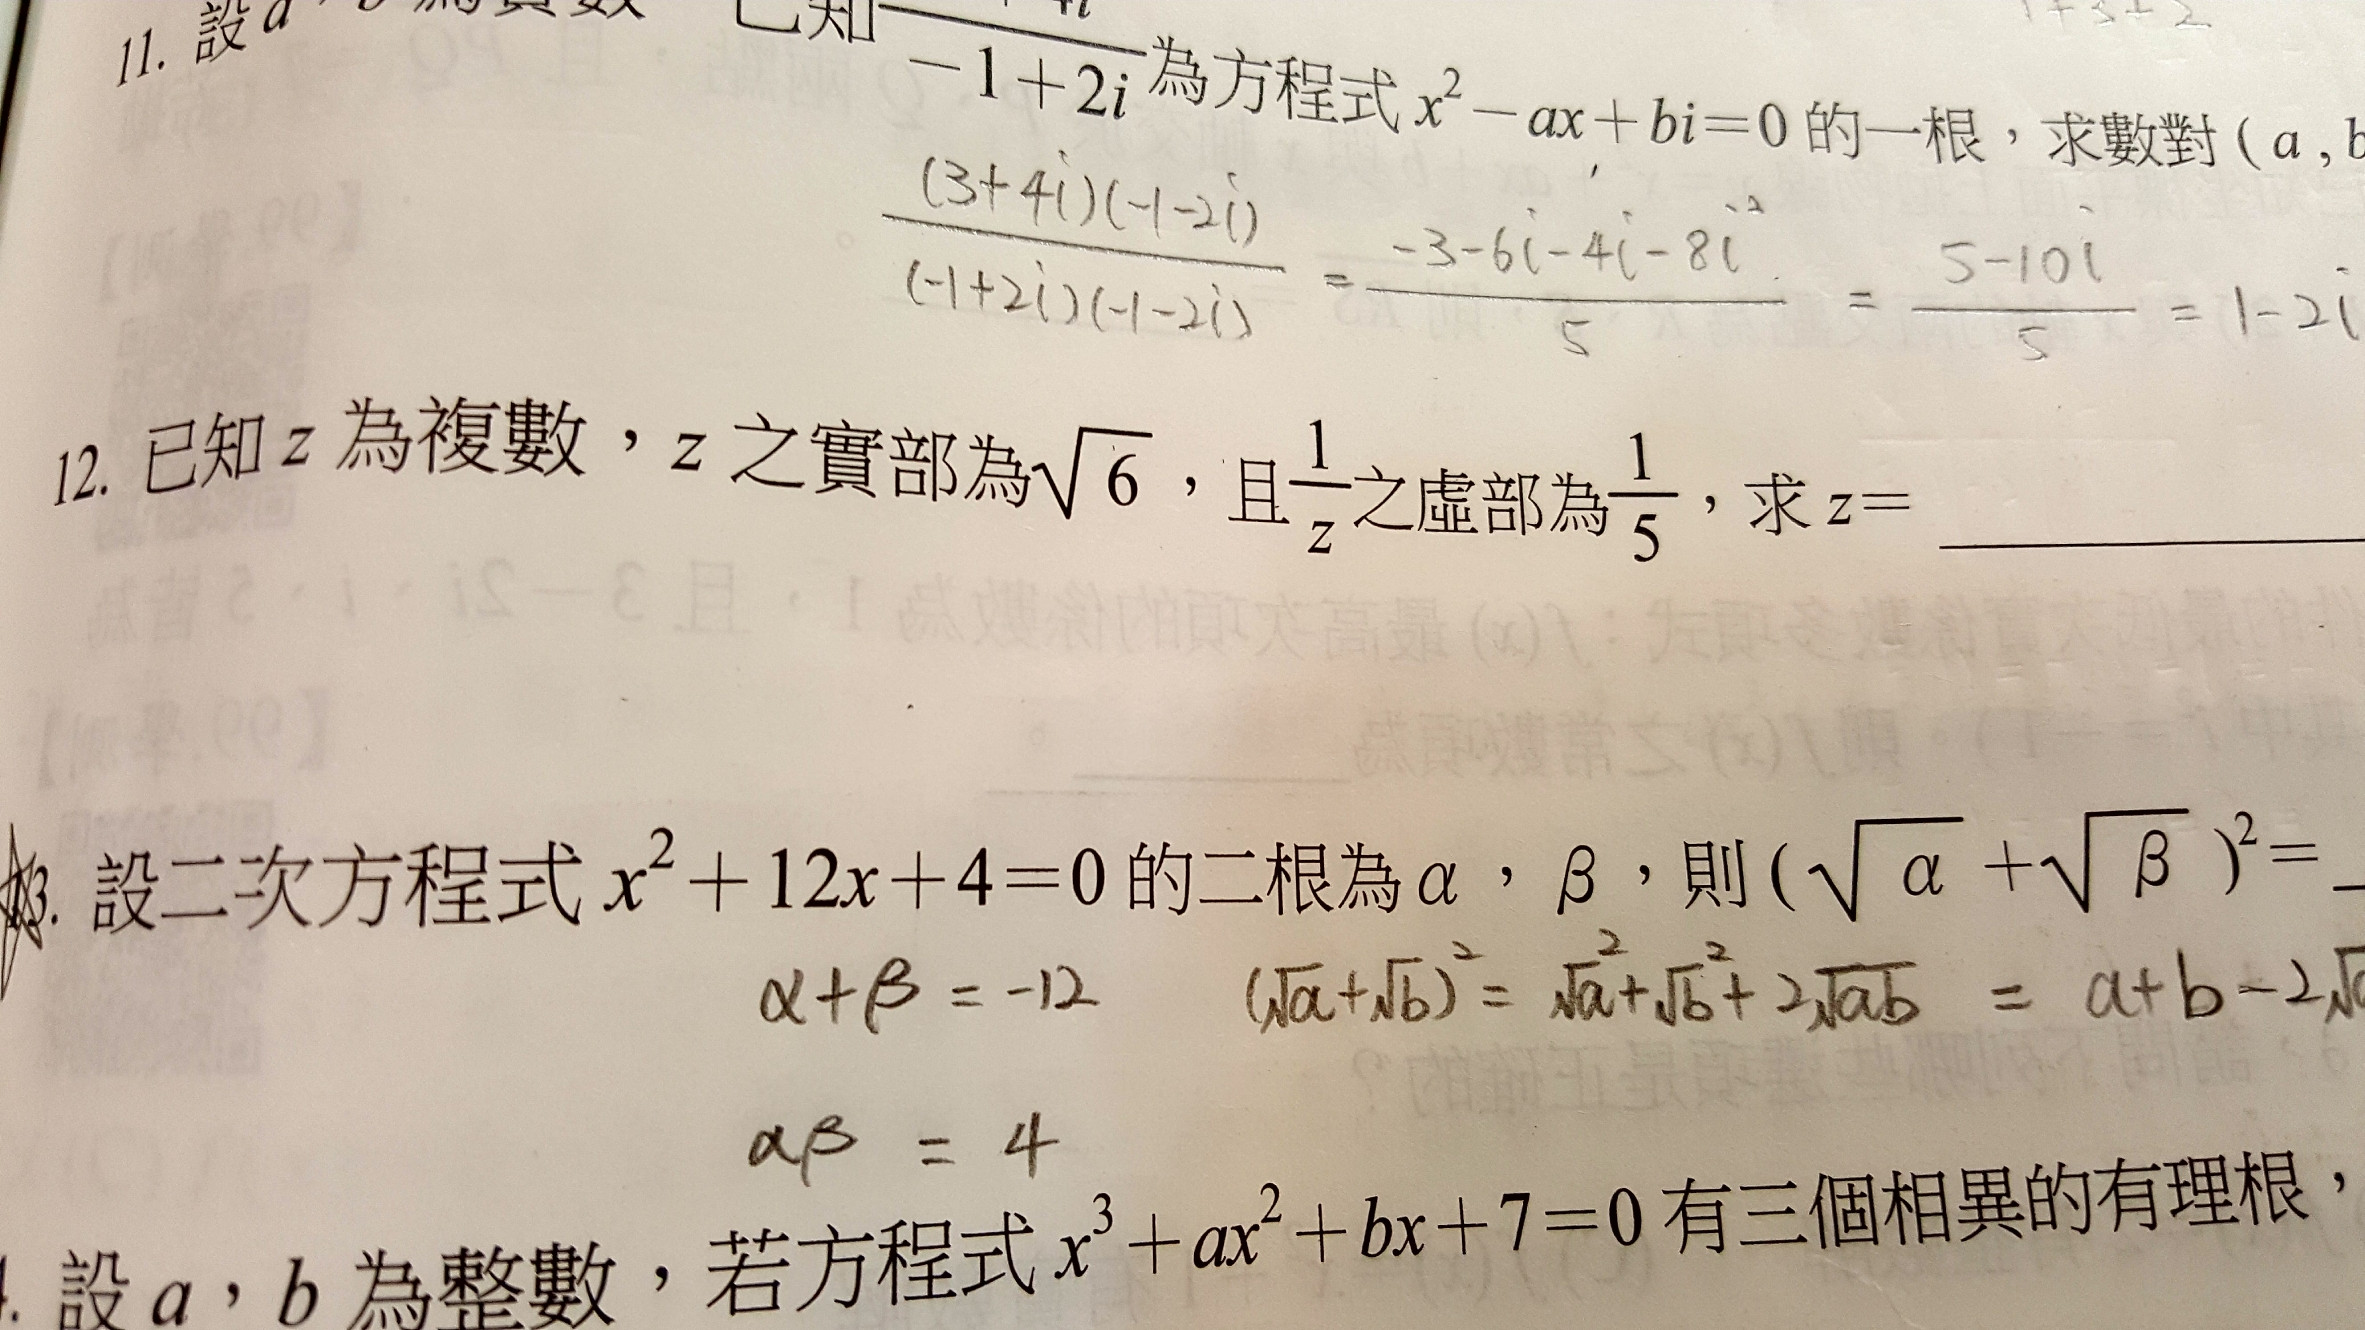 11. 設a，b為實數 已知
－1＋2i 為方程式 x²－ax＋bi＝0 的一根，求數對 ( a , b
(3+4i)(-1-2i) / (-1+2i)(-1-2i) = -3-6i-4i-8i² / 5 = 5-10i / 5 = 1-2i
12. 已知 z 為複數，z 之實部為√6，且 1/z 之虛部為 1/5，求 z＝
13. 設二次方程式 x²＋12x＋4＝0 的二根為 α，β，則 (√α＋√β)²＝
α+β = -12 (√a+√b)² = √a²+√b²+2√ab = a+b-2√
αβ = 4
. 設 a，b 為整數，若方程式 x³＋ax²＋bx＋7＝0 有三個相異的有理根，